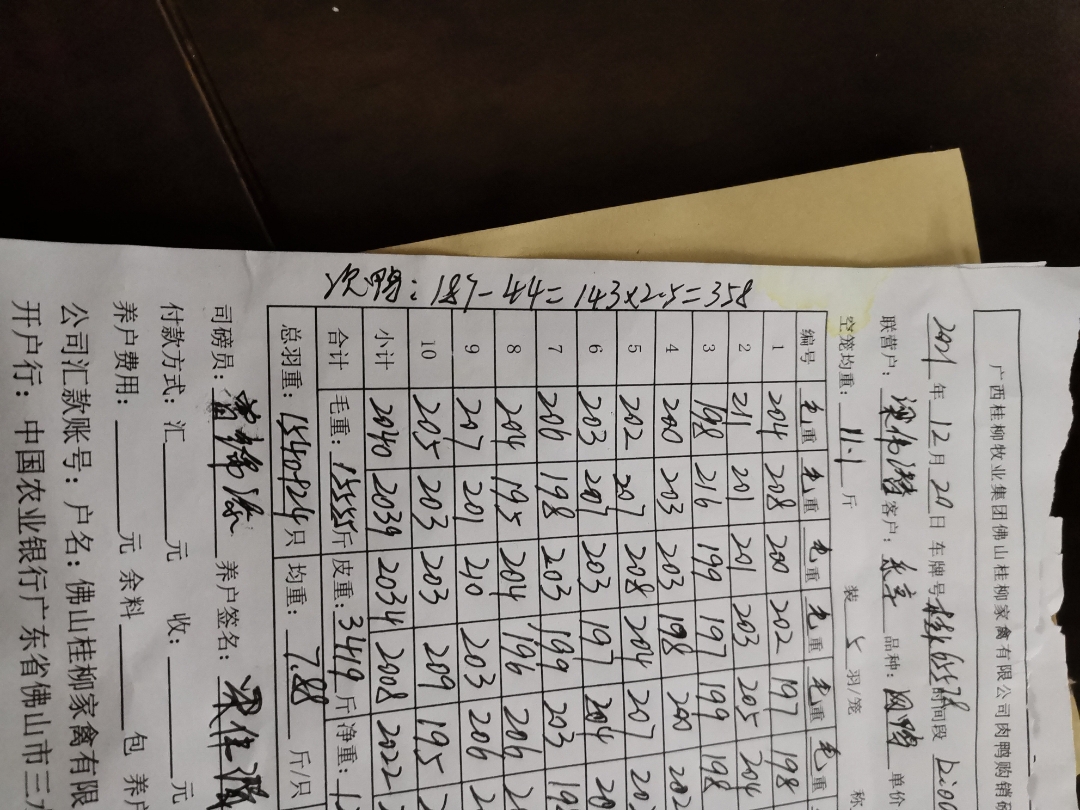 广西桂柳牧业集团佛山桂柳家禽有限公司肉鸭购销
2021年12月20日 车牌号 时间段
联营户: 客户: 品种:网鸭 单价
空笼均重:11.1斤 装5羽/笼 称
编号 毛重 毛重 毛重 毛重 毛重
1 204 208 200 202 197 198
2 211 201 201 203 205 204
3 198 216 199 197 199 198
4 200 203 203 198 200 202
5 202 207 208 204 207
6 203 207 203 197 204
7 206 198 203 199 203
8 204 195 204 196 206
9 207 201 210 203 206
10 205 203 203 209 195
小计 2040 2039 2034 2008 2022
合计 毛重:15555斤 皮重:3419斤 净重:
总羽重:1540+24只 均重:7.88斤/只
司磅员: 养户签名:
付款方式:汇 元 收: 元
养户费用: 元 余料 包 养
公司汇款账号:户名:佛山桂柳家禽有限
开户行:中国农业银行广东省佛山市三
次鸭:187-44=143×2.5=358